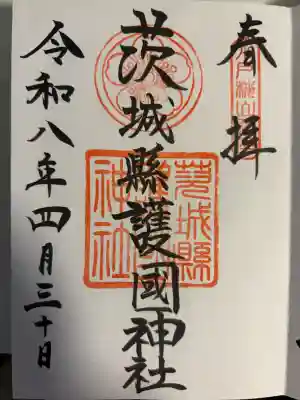 奉拝
茨城縣護國神社
茨城縣
神社
令和八年四月三十日